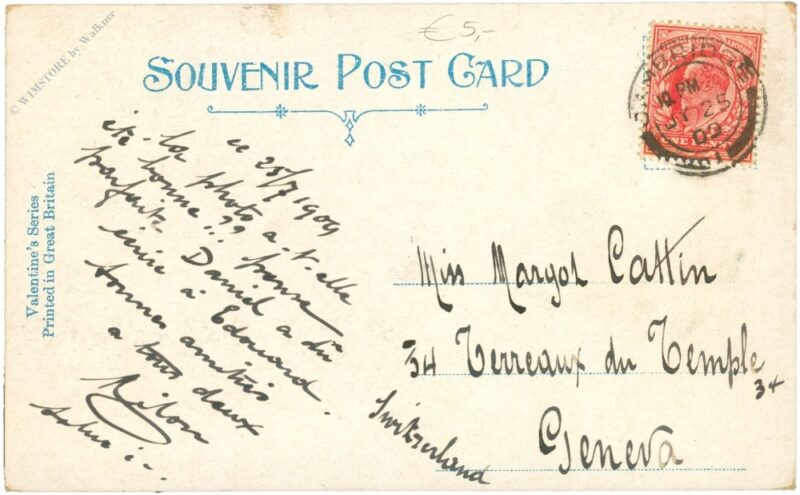 © WIMSTORE by Walkner
€ 5,-
SOUVENIR POST CARD
CAMBRIDGE
10 PM
JY 25
09
Valentine's Series
Printed in Great Britain
ce 25/7 1909
La photo a-t-elle
été bonne !! ??
parfaite Daniel a dû
écrire à Edouard.
bonnes amitiés
a tous deux
Milon
Miss Margot Cattin
34 Terreaux du Temple
34
Geneva
Switzerland